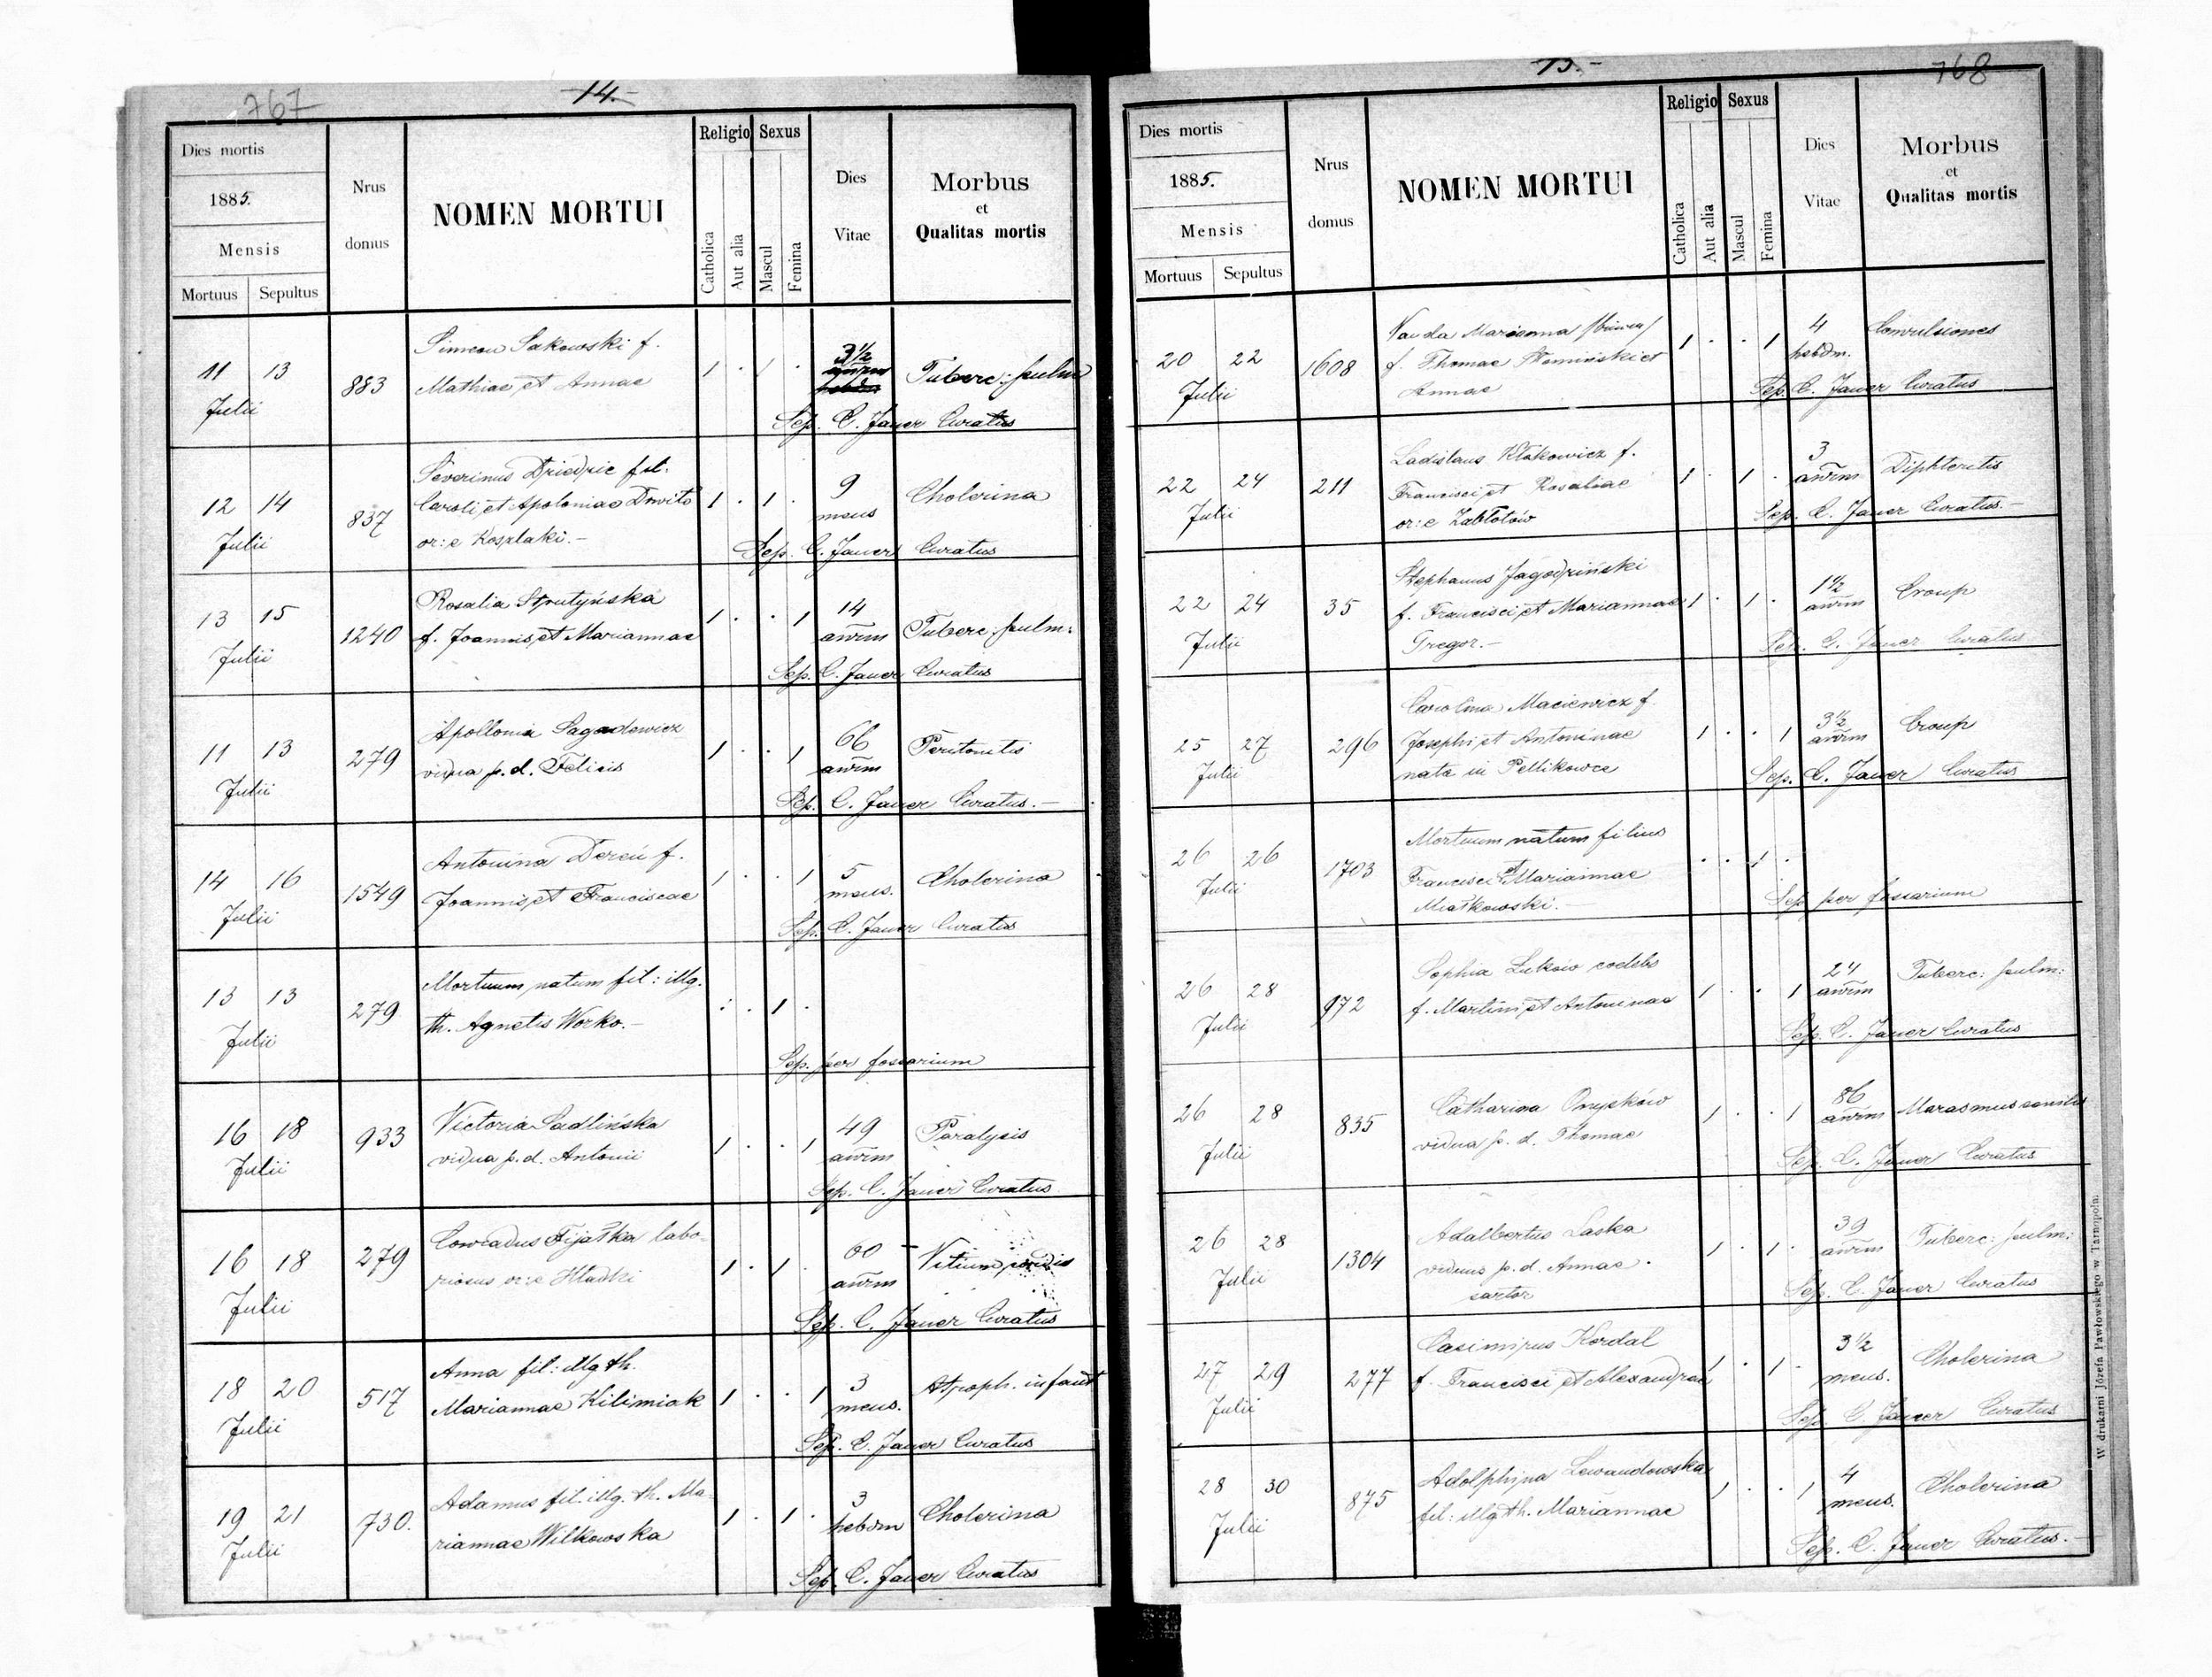 767
14.-
Dies mortis
1885.
Mensis
Mortuus Sepultus
Nrus
domus
NOMEN MORTUI
Religio Sexus
Catholica
Aut alia
Mascul
Femina
Dies
Vitae
Morbus
et
Qualitas mortis
11 13
Julii
883
Simeon Sakowski f.
Mathiae et Annae
1 . 1 .
3 1/2
Tuberc: pulm
Sep. C. Jauer Curatus
12 14
Julii
837
Severinus Dziedzic fil.
Caroli et Apoloniae
or: e Koszlaki.-
1 . 1 .
9
mens
Cholerina
Sep. C. Jauer Curatus
13 15
Julii
1240
Rosalia Strutyńska
f. Joannis et Mariannae
1 . . 1
14
anrm
Tuberc: pulm:
Sep. C. Jauer Curatus
11 13
Julii
279
Apollonia Sagadowicz
vidua p. d. Felicis
1 . . 1
66
anrm
Peritonitis
Sep. C. Jauer Curatus.-
14 16
Julii
1549
Antonina Dereń f.
Joannis et Franciscae
1 . . 1
5
mens.
Cholerina
Sep. C. Jauer Curatus
13 13
Julii
279
Mortuum natum fil: illg.
th. Agnetis Worko.-
. . 1 .
Sep. per fossarium
16 18
Julii
933
Victoria Sadlińska
vidua p. d. Antonii
1 . . 1
49
anrm
Paralysis
Sep. C. Jauer Curatus
16 18
Julii
279
Conradus Fijałka labo-
riosus or: e Hladki
1 . 1 .
60
anrm
Vitium cordis
Sep. C. Jauer Curatus
18 20
Julii
517
Anna fil: illg th.
Mariannae Kilimiak
1 . . 1
3
mens.
Atroph. infant
Sep. C. Jauer Curatus
19 21
Julii
730.
Adamus fil. illg. th. Ma-
riannae Wilkowska
1 . 1 .
3
hebdm
Cholerina
Sep. C. Jauer Curatus
768
15.-
Dies mortis
1885.
Mensis
Mortuus Sepultus
Nrus
domus
NOMEN MORTUI
Religio Sexus
Catholica
Aut alia
Mascul
Femina
Dies
Vitae
Morbus
et
Qualitas mortis
20 22
Julii
1608
Vanda Marianna
f. Thomae et
Annae
1 . . 1
4
hebdm.
Convulsiones
Sep. C. Jauer Curatus
22 24
Julii
211
Ladislaus Kłakowicz f.
Francisci et Rosaliae
or: e Zabłotów
1 . 1 .
3
anrm
Diphteritis
Sep. C. Jauer Curatus.-
22 24
Julii
35
Stephanus Jagodziński
f. Francisci et Mariannae
Gregor.-
1 . 1 .
1 1/2
anrm
Croup
Sep. C. Jauer Curatus
25 27
Julii
296
Carolina Maciewicz f.
Josephi et Antoninae
nata in Petlikowce
1 . . 1
3 1/2
anrm
Croup
Sep. C. Jauer Curatus
26 26
Julii
1703
Mortuum natum filius
Francisci et Mariannae
Miatkowski.-
. . 1 .
Sep per fossarium
26 28
Julii
972
Sophia Luków coelebs
f. Martini et Antoninae
1 . . 1
24
anrm
Tuberc: pulm:
Sep. C. Jauer Curatus
26 28
Julii
835
Catharina Onysków
vidua p. d. Thomae
1 . . 1
86
anrm
Marasmus senilis
Sep. C. Jauer Curatus
26 28
Julii
1304
Adalbertus Laska
viduus p. d. Annae.
sartor
1 . 1 .
39
anrm
Tuberc: pulm:
Sep. C. Jauer Curatus
27 29
Julii
277
Casimirus Kordal
f. Francisci et Alexandrae
1 . 1 .
3 1/2
mens.
Cholerina
Sep. C. Jauer Curatus
28 30
Julii
875
Adolphina Lewandowska
fil: illg th. Mariannae
1 . . 1
4
mens.
Cholerina
Sep. C. Jauer Curatus.-
W drukarni Józefa Pawłowskiego w Tarnopolu.